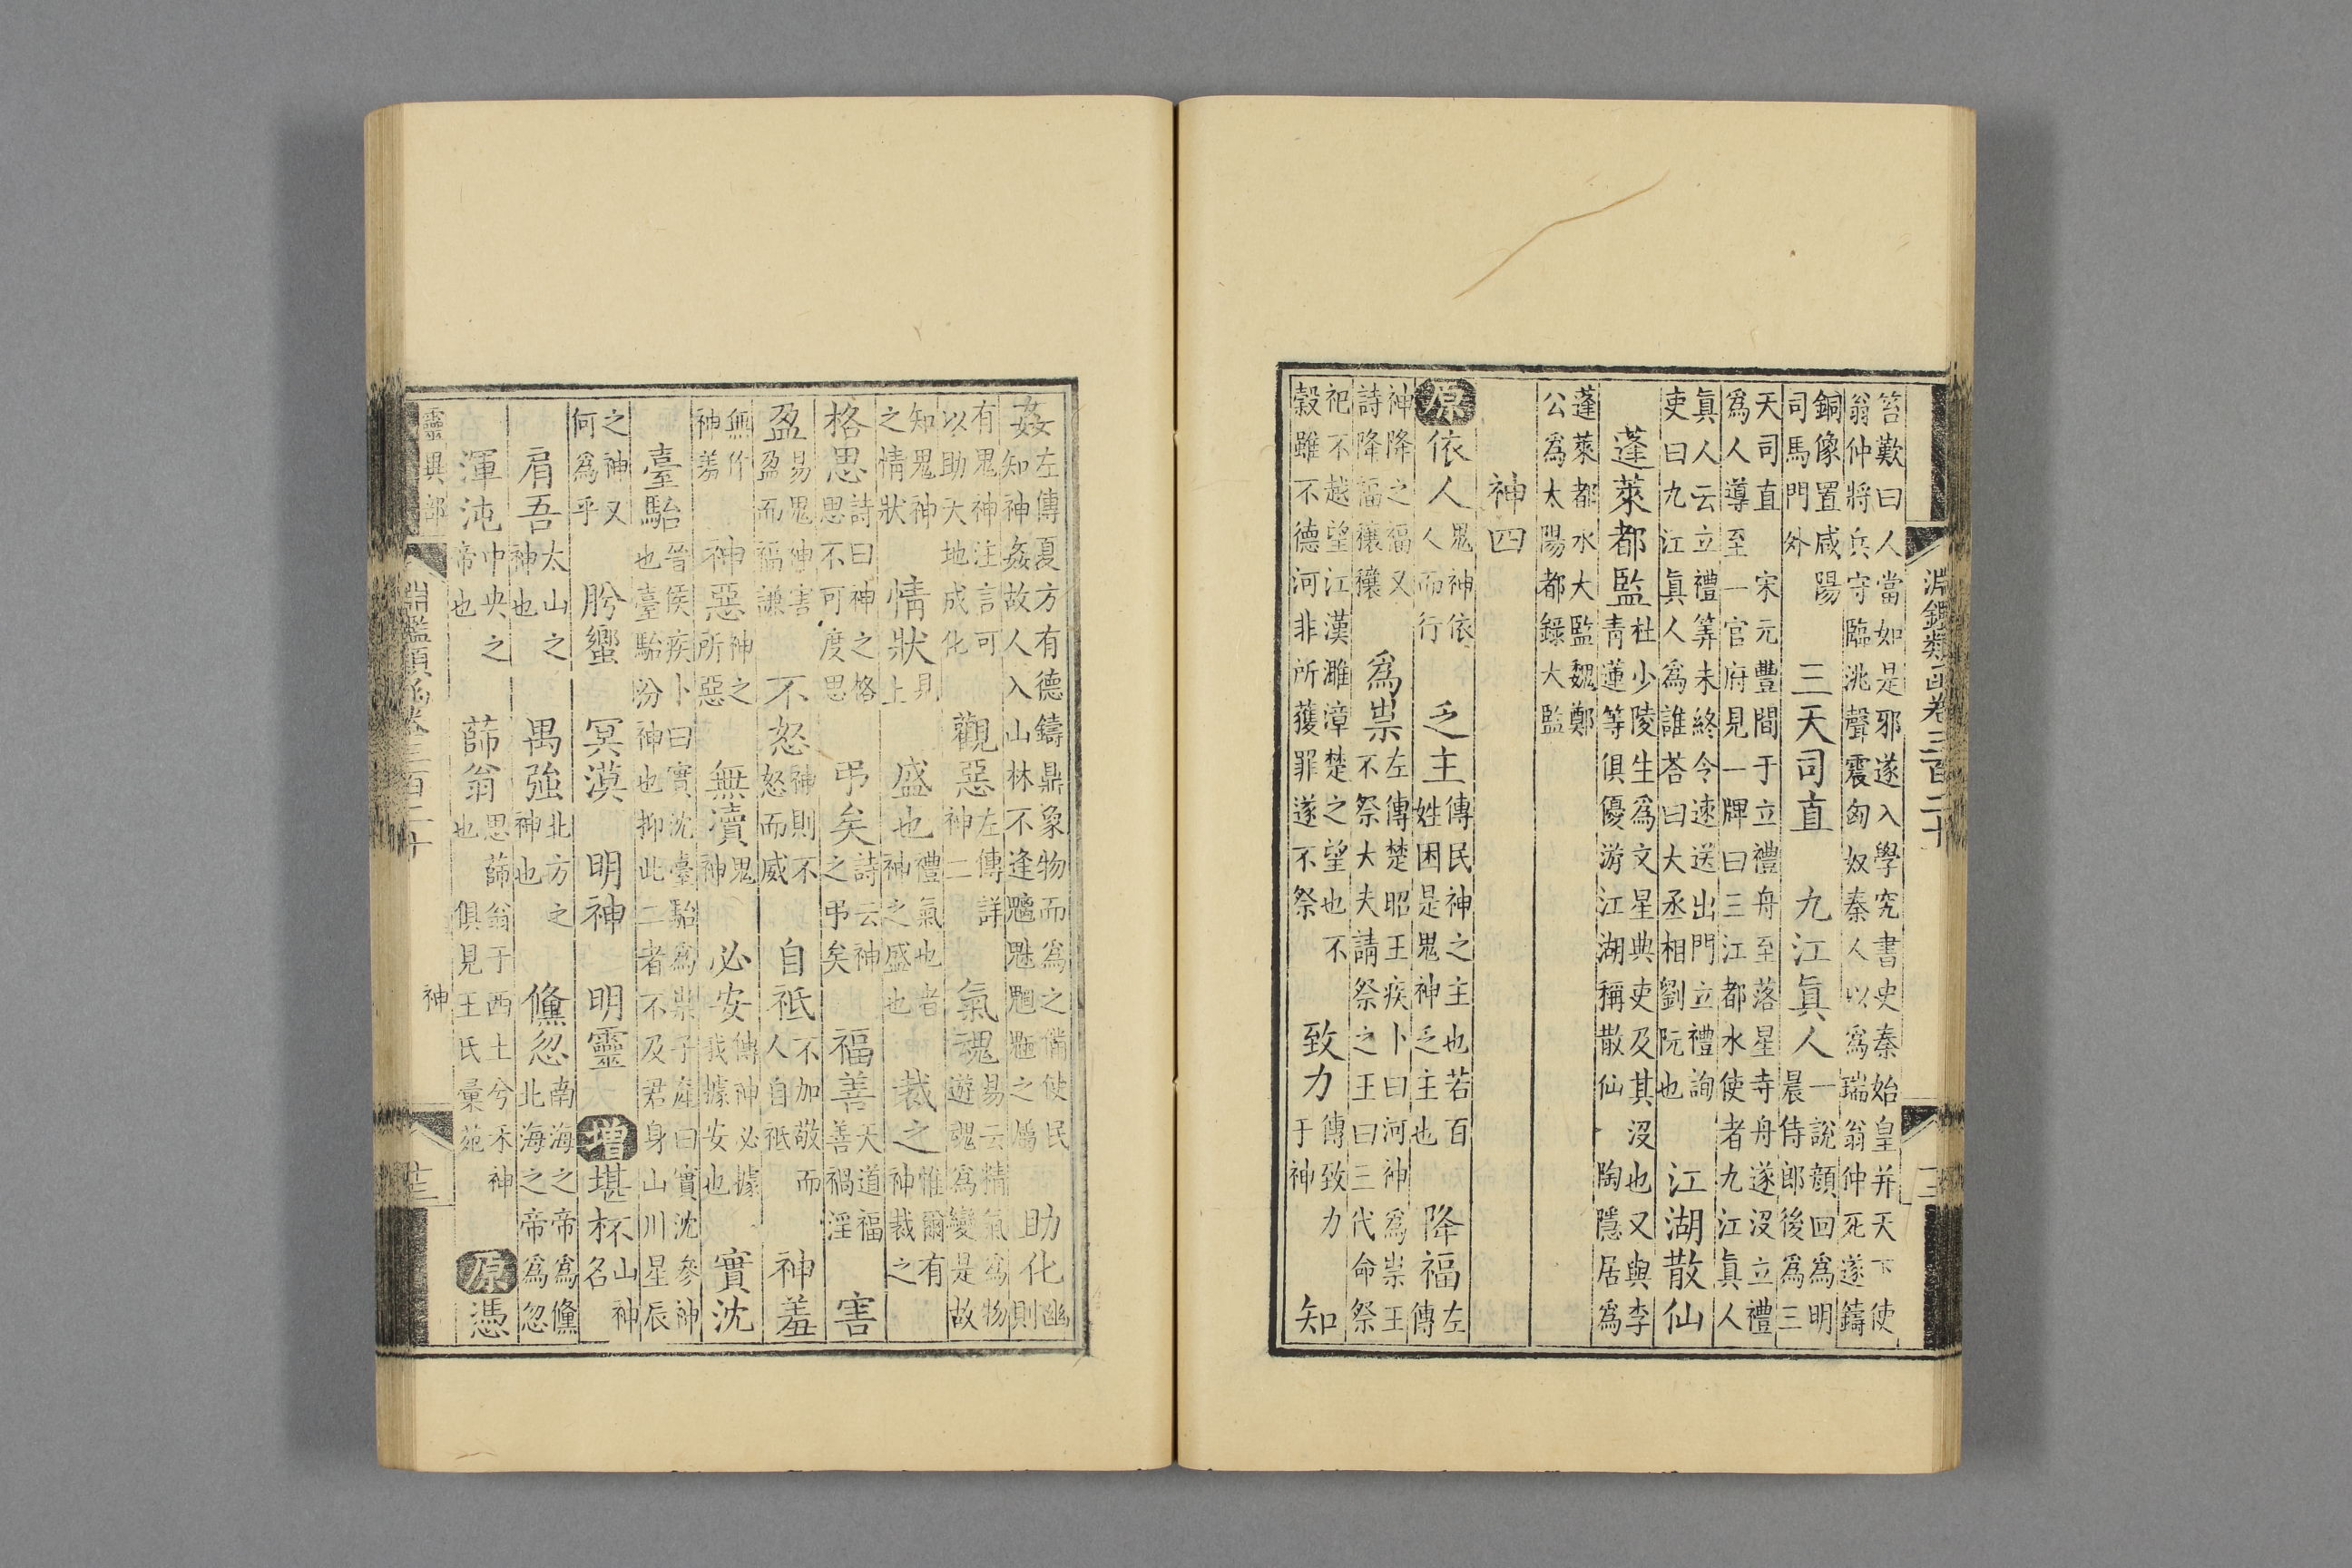 淵鑑類函卷三百二十
笞歎曰人當如是邪遂入學究書史秦始皇并天下使
翁仲將兵守臨洮聲震匈奴秦人以爲瑞翁仲死遂鑄
銅像置咸陽司馬門外 三天司直 九江眞人 一說顏回爲明晨侍郎後爲三
天司直 宋元豐間于立禮舟至落星寺舟遂沒立禮
爲人導至一官府見一牌曰三江都水使者九江眞人
眞人云立禮筭未終令速送出門立禮詢吏曰九江眞人爲誰荅曰大丞相劉阮也 江湖散仙
蓬萊都監 杜少陵生爲文星典吏及其沒也又與李青蓮等俱優游江湖稱散仙 陶隱居爲
蓬萊都水大監魏鄭公爲太陽都錄大監
神四
原 依人 鬼神依人而行 乏主 傳民神之主也若百姓困是鬼神乏主也 降福 左傳
神降之福又詩降福穰穰 爲祟 左傳楚昭王疾卜曰河神爲祟王不祭大夫請祭之王曰三代命祭
祀不越望江漢雎漳楚之望也不穀雖不德河非所獲罪遂不祭 致力 傳致力于神 知
姦 左傳夏方有德鑄鼎象物而爲之備使民知神姦故人入山林不逢魑魅魍魎之屬 助化 幽則
有鬼神注言可以助天地成化 觀惡 左傳詳神二 氣魂 易云精氣爲物遊魂爲變是故
知鬼神之情狀 情狀 見上 盛也 禮氣也者神之盛也 裁之 惟爾有神裁之
格思 詩曰神之格思不可度思 弔矣 詩云神之弔矣 福善 天道福善禍淫 害
盈 易鬼神害盈而福謙 不怒 神則不怒而威 自祗 不加敬而人自祗 神羞
無作神羞 神惡 神之所惡 無瀆 鬼神 必安 傳神必據我據安也 實沈
臺駘 晉侯疾卜曰實沈臺駘爲祟子產曰實沈參神也臺駘汾神也抑此二者不及君身山川星辰
之神又何爲乎 肸蠁 冥漠 明神 明靈 增 堪坏 山神名
肩吾 太山之神也 禺強 北方之神也 儵忽 南海之帝爲儵北海之帝爲忽
渾沌 中央之帝也 薛翁 思薛翁于西土兮禾神也 俱見王氏彙苑 原 憑
靈異部 淵鑑類函卷三百二十 神